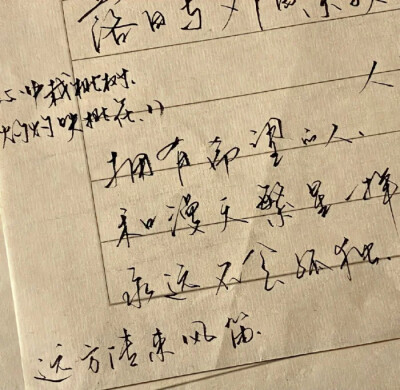 落日与
心中栽桃树.
灼灼映桃花.
人
拥有希望的人.
和漫天繁星一样
永远不会孤独.
远方传来风笛.